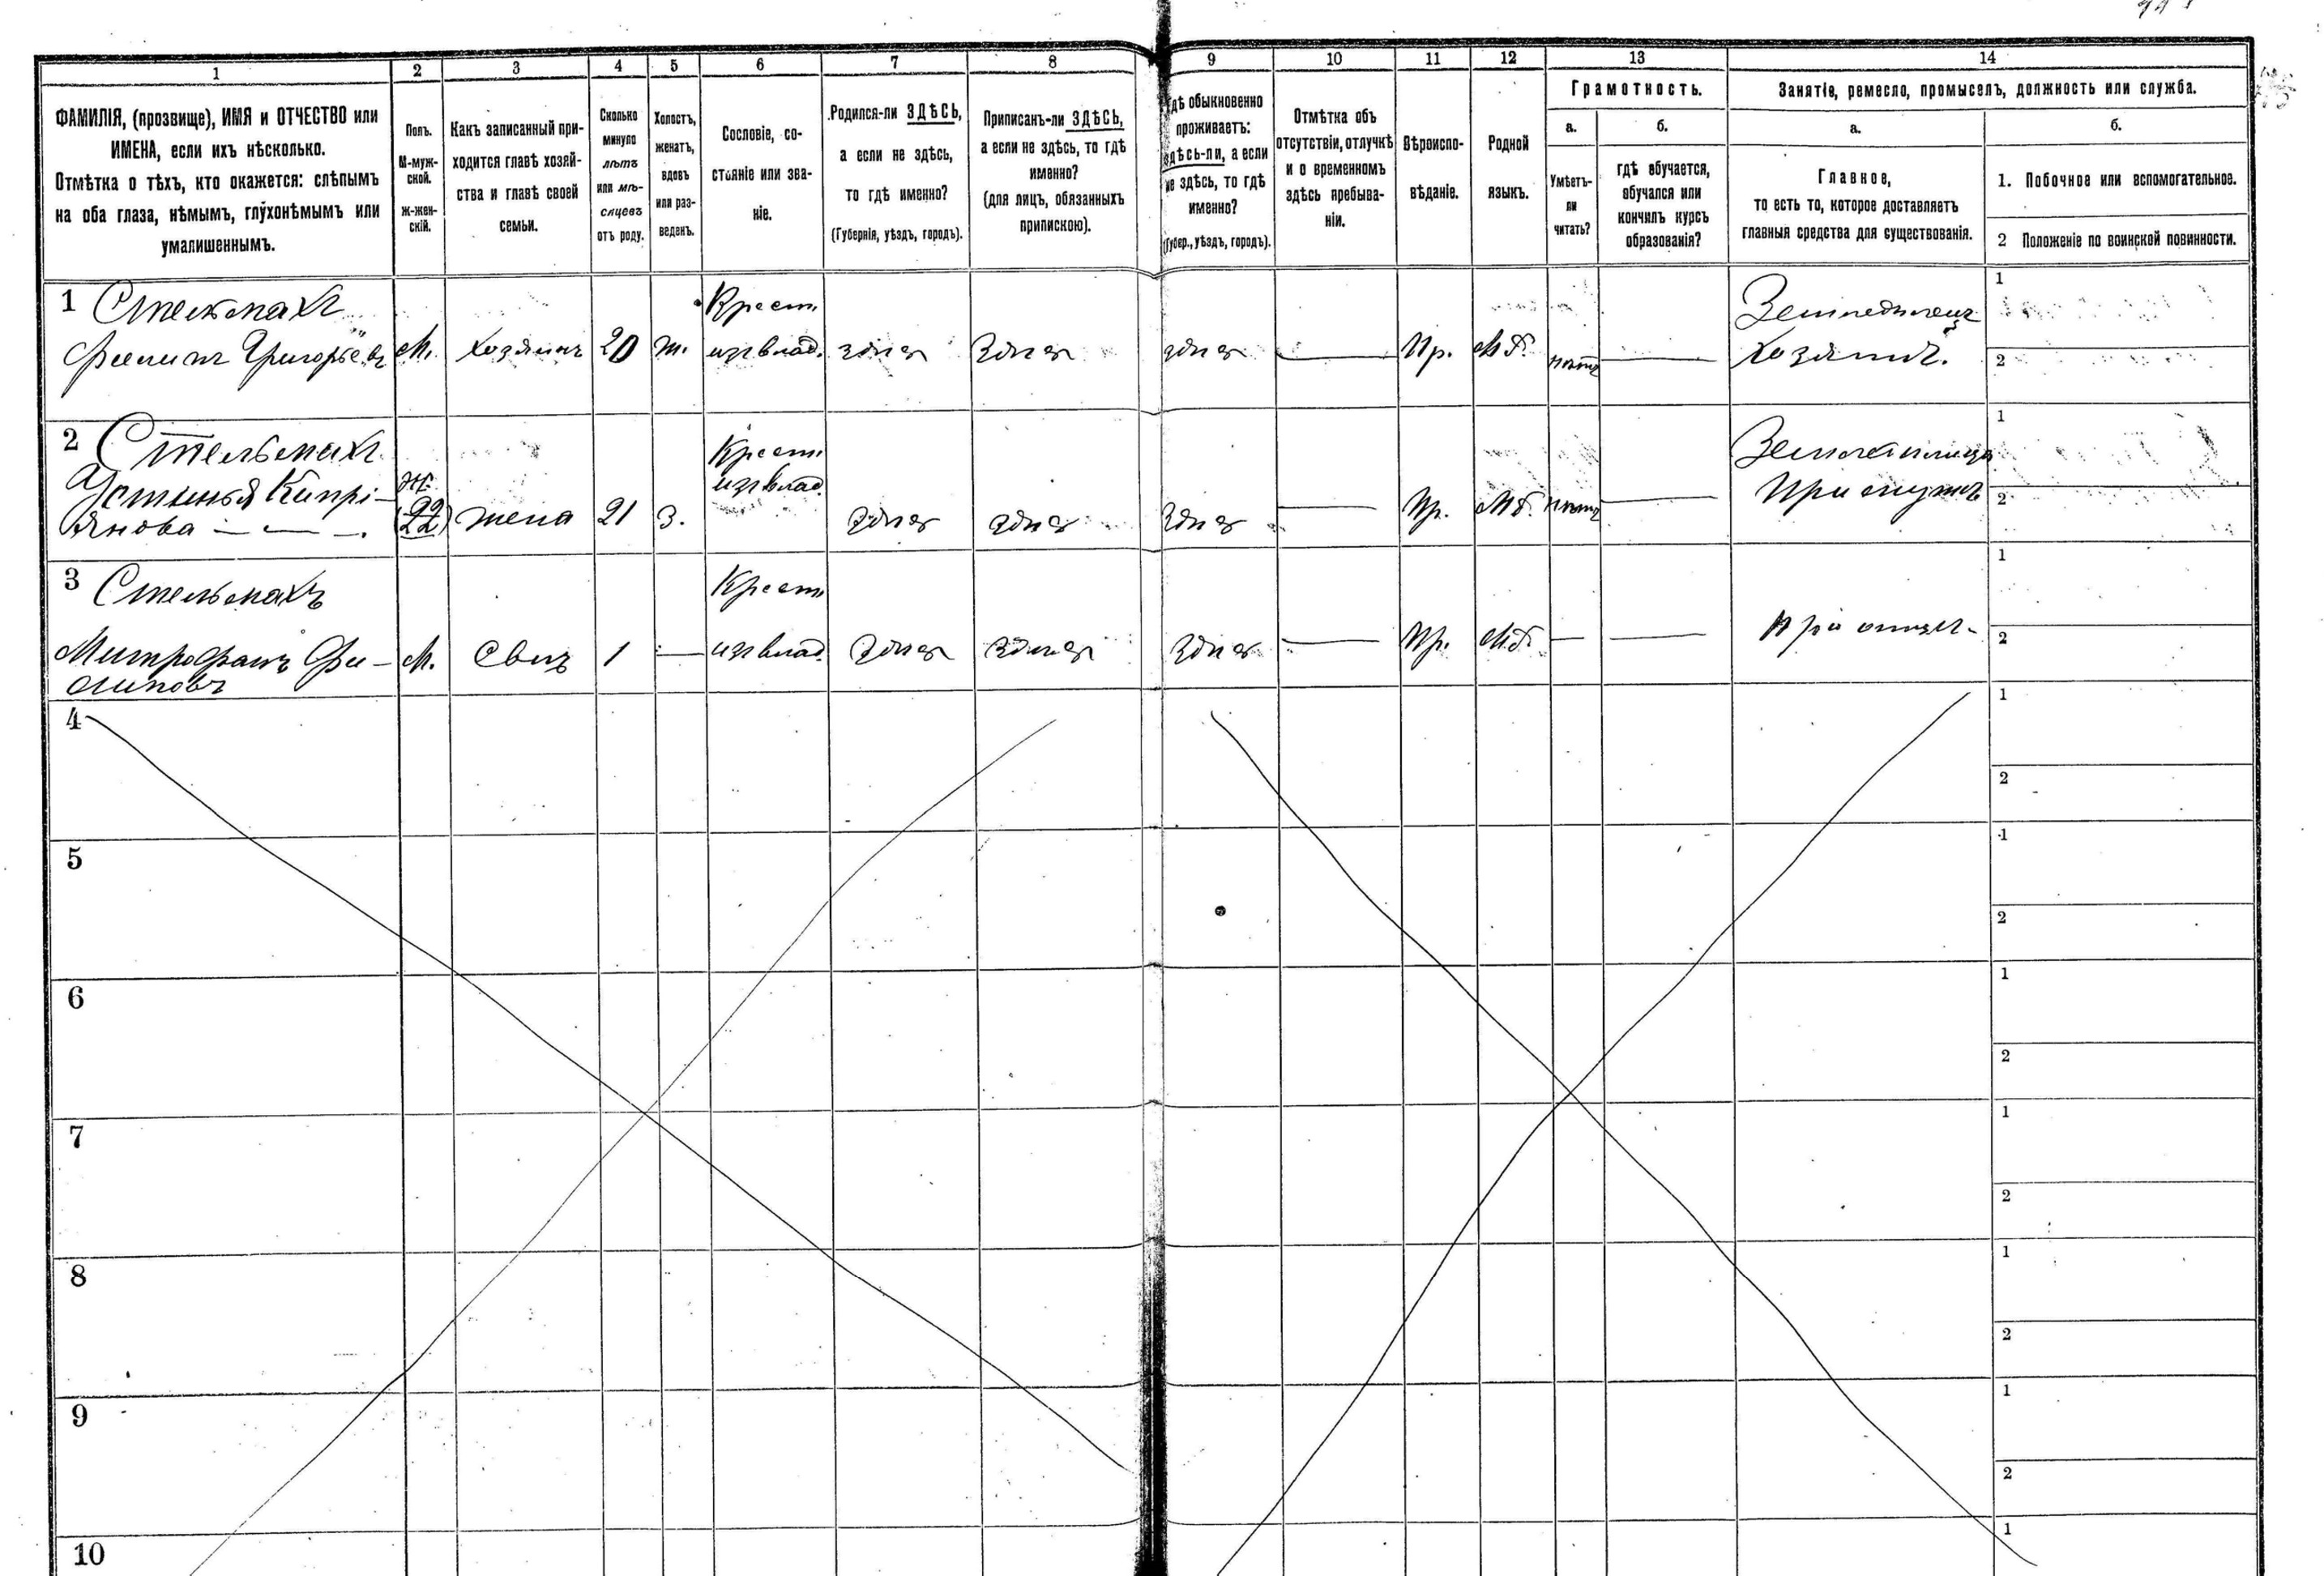 1 2 3 4 5 6 7 8 9 10 11 12 13 14
ФАМИЛІЯ, (прозвище), ИМЯ и ОТЧЕСТВО или
ИМЕНА, если ихъ нѣсколько.
Отмѣтка о тѣхъ, кто окажется: слѣпымъ
на оба глаза, нѣмымъ, глухонѣмымъ или
умалишеннымъ.
Полъ.
М-муж-
ской.
Ж-жен-
скій.
Какъ записанный при-
ходится главѣ хозяй-
ства и главѣ своей
семьи.
Сколько
минуло
лѣтъ
или мѣ-
сяцевъ
отъ роду.
Холостъ,
женатъ,
вдовъ
или раз-
веденъ.
Сословіе, со-
стояніе или зва-
ніе.
Родился-ли ЗДѢСЬ,
а если не здѣсь,
то гдѣ именно?
(Губернія, уѣздъ, городъ).
Приписанъ-ли ЗДѢСЬ,
а если не здѣсь, то гдѣ
именно?
(для лицъ, обязанныхъ
припискою).
Гдѣ обыкновенно
проживаетъ:
здѣсь-ли, а если
не здѣсь, то гдѣ
именно?
(Губер., уѣздъ, городъ).
Отмѣтка объ
отсутствіи, отлучкѣ
и о временномъ
здѣсь пребыва-
ніи.
Вѣроиспо-
вѣданіе.
Родной
языкъ.
Грамотность.
а.
Умѣетъ-
ли
читать?
б.
гдѣ обучается,
обучался или
кончилъ курсъ
образованія?
Занятіе, ремесло, промыселъ, должность или служба.
а.
Главное,
то есть то, которое доставляетъ
главныя средства для существованія.
б.
1. Побочное или вспомогательное.
2 Положеніе по воинской повинности.
1 Стельмахъ Крест. Земледѣлецъ 1
Филипъ Григорьевъ М. Хозяинъ 20 ж. изъ влад. здѣсь здѣсь здѣсь — Пр. Мб. нѣтъ — Хозяинъ. 2
2 Стельмахъ Крест. 1
Устинья Кипрі- ж. изъ влад. При мужѣ 2
янова — — . (22) жена 21 з. здѣсь здѣсь здѣсь — Пр. Мб. нѣтъ —
3 Стельмахъ Крест. 1
Митрофанъ Фи- М. Сынъ 1 — изъ влад. здѣсь здѣсь здѣсь — Пр. Мб. — — при отцѣ 2
липовъ
4 1
2
5 1
2
6 1
2
7 1
2
8 1
2
9 1
2
10 1